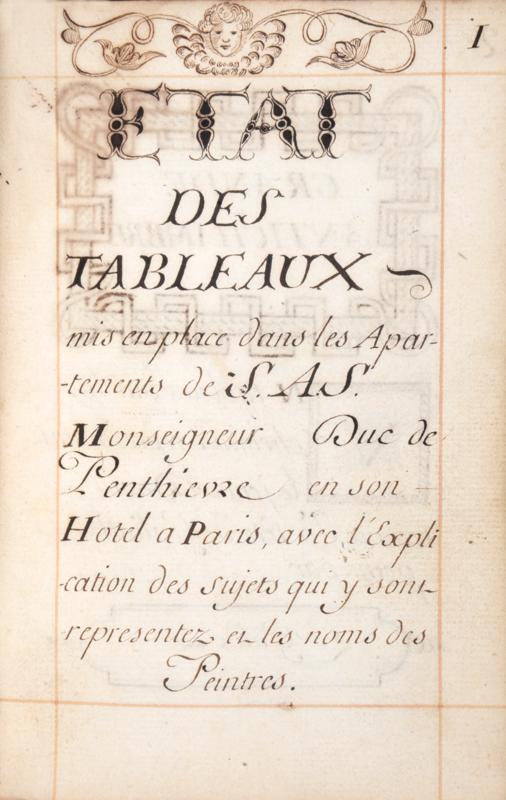 I
ETAT
DES
TABLEAUX
mis en place dans les Apar-
-tements de S. A. S.
Monseigneur Duc de
Penthievre en son
Hotel a Paris, avec l'Expli
-cation des sujets qui y sont
representez et les noms des
Peintres.